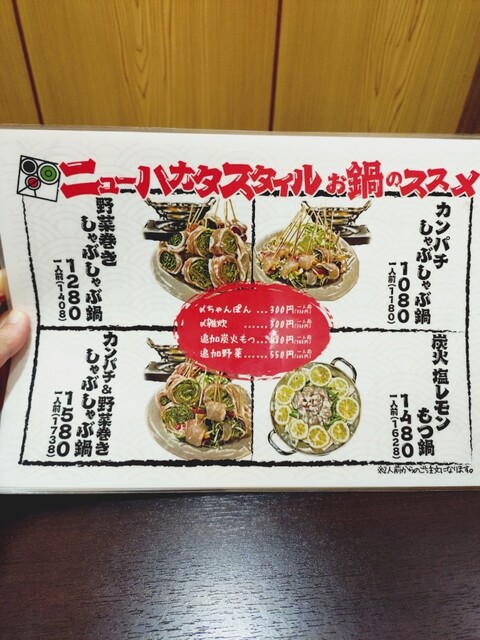 ニューハカタスタイル お鍋のススメ
野菜巻き
しゃぶしゃぶ鍋
1280
一人前(1408)
カンパチ
しゃぶしゃぶ鍋
1080
一人前(1180)
〆ちゃんぽん ……300円
〆雑炊 ……300円
追加炭火もつ
追加野菜 ……550円
カンパチ&野菜巻き
しゃぶしゃぶ鍋
1580
一人前(1738)
炭火 塩レモン
もつ鍋
1480
一人前(1628)
※2人前からのご注文になります。